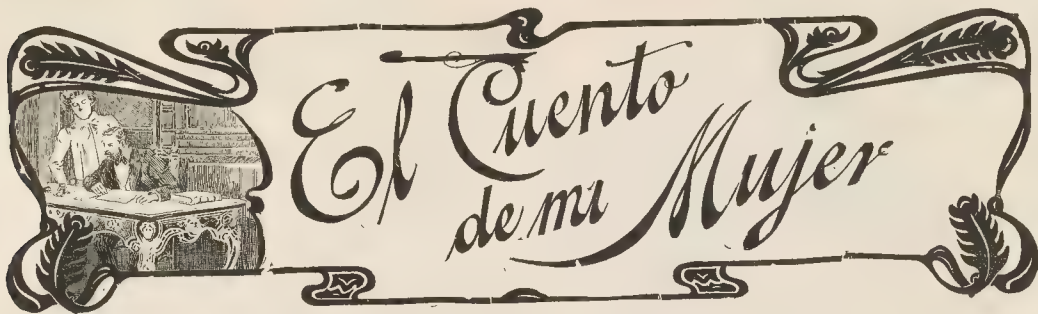 El Cuento
de mi Mujer